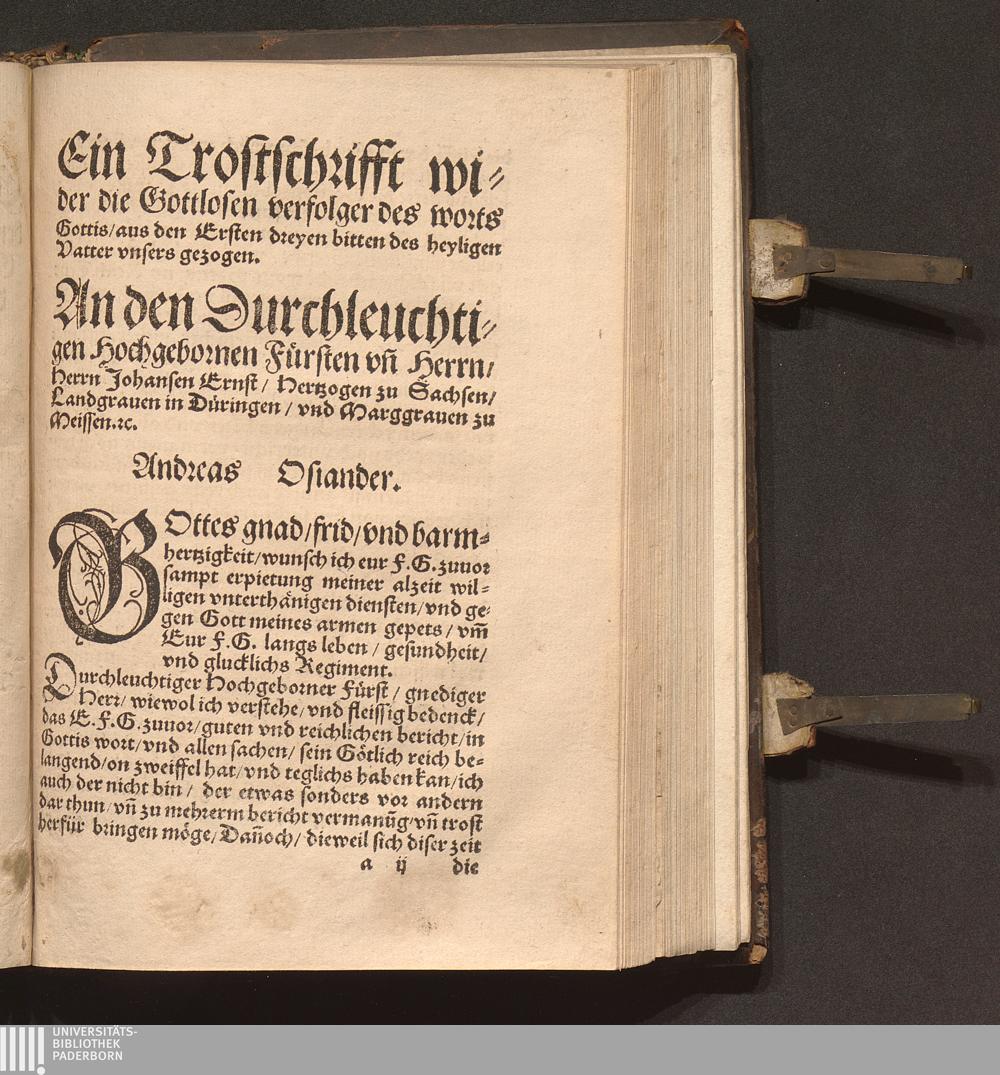 Ein Trostschrifft wi-
der die Gottlosen verfolger des worts
Gottis/aus den Ersten dreyen bitten des heyligen
Vatter vnsers gezogen.
An den Durchleuchti-
gen Hochgebornen Fürsten vñ Herrn/
Herrn Johansen Ernst/ Hertzogen zu Sachsen/
Landgrauen in Düringen/ vnd Marggrauen zu
Meissen.ꝛc.
Andreas Osiander.
GOttes gnad/frid/vnd barm-
hertzigkeit/wunsch ich eur F.G.zuuor
sampt erpietung meiner alzeit wil-
ligen vnterthänigen diensten/vnd ge-
gen Gott meines armen gepets/ vm̃
Eur F.G. langs leben/ gesundheit/
vnd glucklichs Regiment.
Durchleuchtiger Hochgeborner Fürst/ gnediger
Herr/ wiewol ich verstehe/vnd fleissig bedenck/
das E.F.G.zuuor/guten vnd reichlichen bericht/in
Gottis wort/vnd allen sachen/ sein Götlich reich be-
langend/on zweiffel hat/vnd teglichs haben kan/ich
auch der nicht bin/ der etwas sonders vor andern
dar thun/vñ zu mehrerm bericht vermanũg/vñ trost
herfür bringen möge/Dañoch/dieweil sich diser zeit
a ij die
UNIVERSITÄTS-
BIBLIOTHEK
PADERBORN